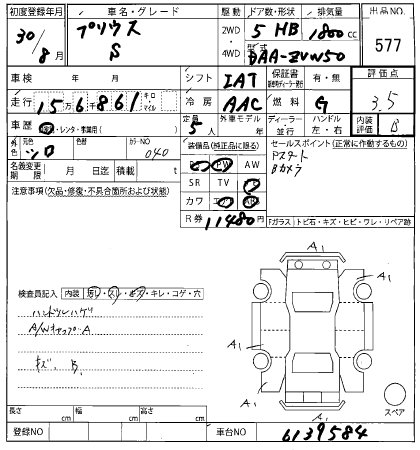 初度登録年月 車名・グレード 駆動 ドア数・形状 排気量 出品NO.
30/8月 プリウス S 2WD・4WD 5 HB 1800cc 577
型式 DAA-ZVW50
車検 年 月 シフト IAT 保証書 有・無 評価点
走行 15万6千861 キロ・マイル 冷房 AAC 燃料 G 3.5
車歴 自家・レンタ・事業用( ) 定員 5人 外車モデル 年 ディーラー・並行 ハンドル 左・右 内装評価 B
外色 元色 シロ 色替 カラーNO 040 装備品(純正品に限る) セールスポイント(正常に作動するもの)
PS PW AW Pスタート
名義変更期限 月 日迄 積載 t SR TV ナビ Bカメラ
注意事項(欠品・修復・不具合箇所および状態) カワ エアB ABS
R券 11480円 「Fガラス」トビ石・キズ・ヒビ・ワレ・リペア跡
検査員記入 内装 汚レ・スレ・キズ・キレ・コゲ・穴
ハンドルハゲ
A/WキャップA
キズ、B
A1
A1
A1
A1
A1
A1
スペア
長さ cm 幅 cm 高さ cm
登録NO 車台NO 6139584